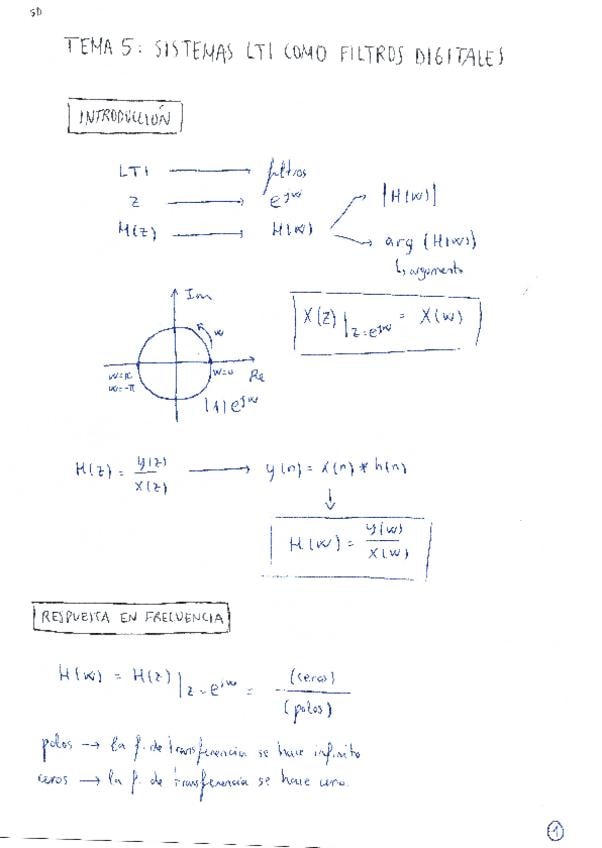 SD
TEMA 5: SISTEMAS LTI COMO FILTROS DIGITALES
INTRODUCCIÓN
LTI → filtros
z → e^jw
H(z) → H(w) → |H(w)|
→ arg (H(w))
↳ argumento
Im
w
w=π
w=-π
w=0
Re
|1|e^jw
X(z)|z=e^jw = X(w)
H(z) = y(z)/X(z) → y(n) = x(n) * h(n)
↓
H(w) = y(w)/X(w)
RESPUESTA EN FRECUENCIA
H(w) = H(z)|z=e^jw = (ceros)/(polos)
polos → la f. de transferencia se hace infinito
ceros → la f. de transferencia se hace cero.
1